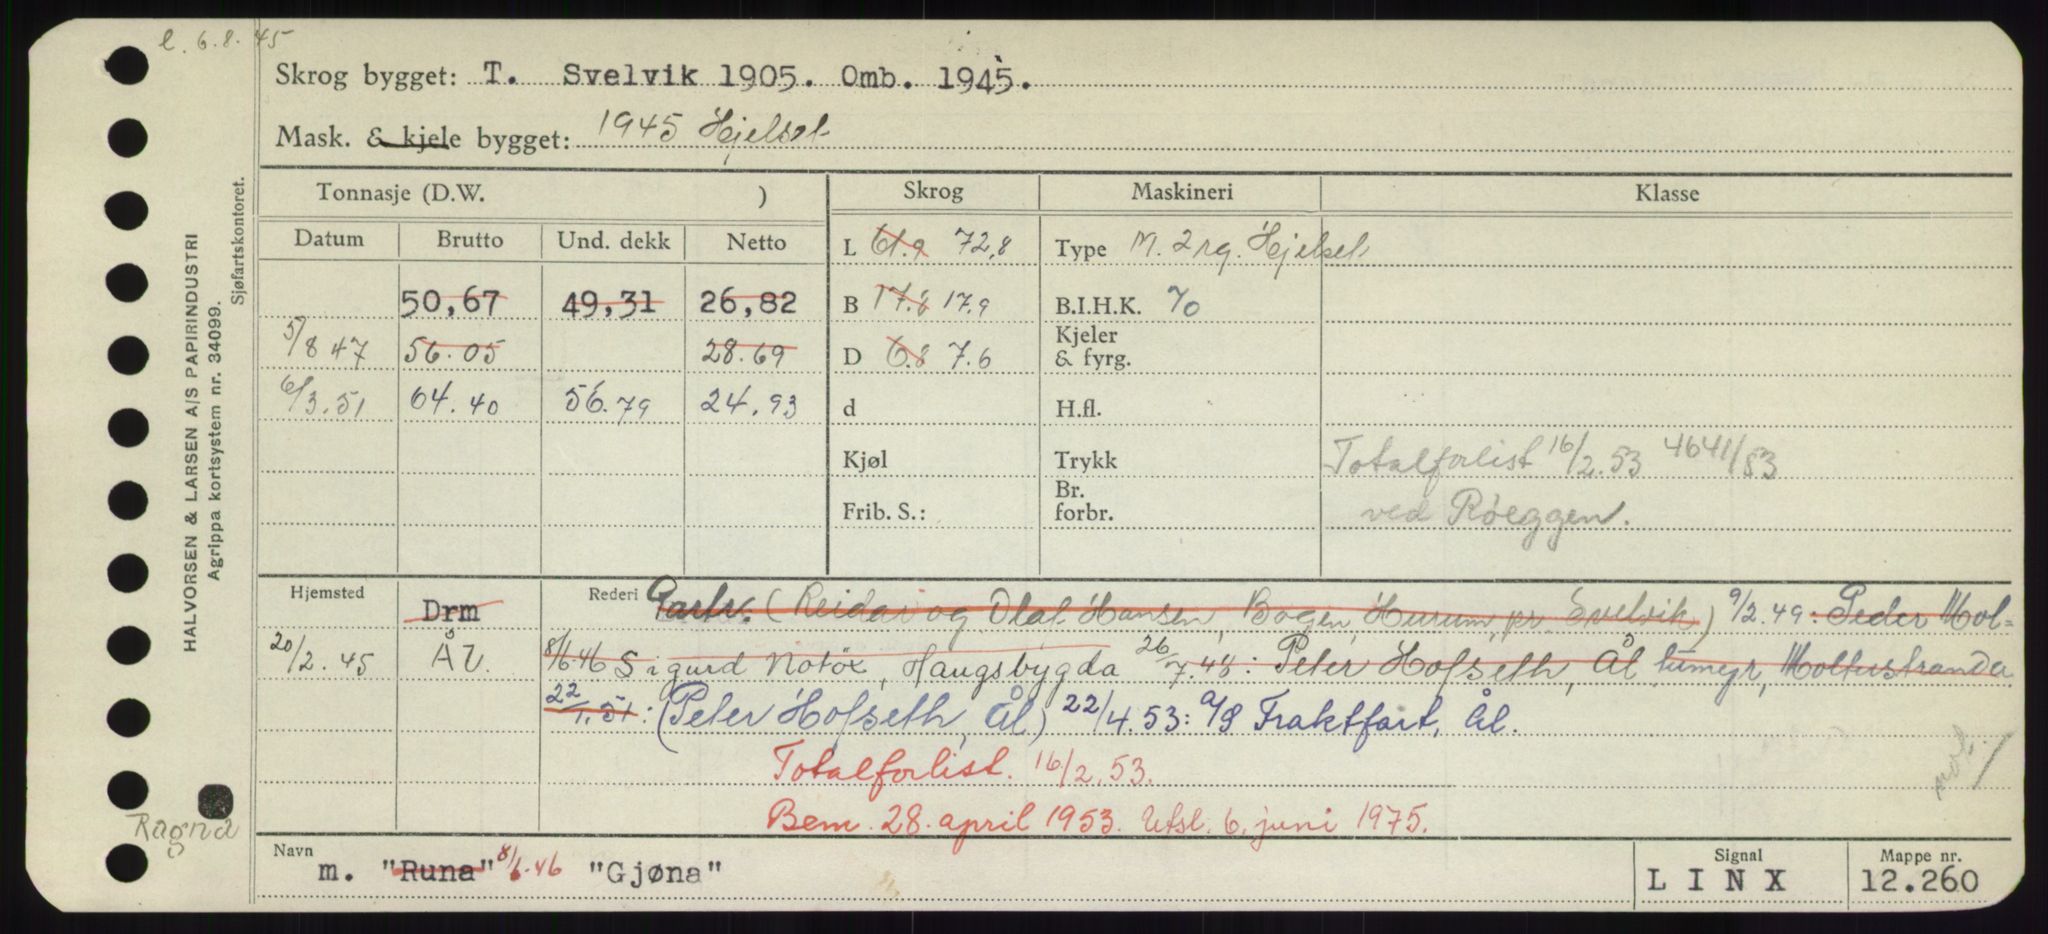 e. 6.8.45
Skrog bygget: T. Svelvik 1905. Omb. 1945.
Mask. & kjele bygget: 1945 Hjelset
Tonnasje (D.W. )
Skrog
Maskineri
Klasse
Datum Brutto Und. dekk Netto
L 61.9 72,8
Type M. 2 sg. Hjelset
50,67 49,31 26,82
B 17.8 17.9
B.I.H.K. 70
5/8 47 56.05 28.69
D 6.8 7.6
Kjeler
& fyrg.
6/3.51 64.40 56.79 24.93
d
H.fl.
Kjøl
Trykk
Totalforlist 16/2.53 4641/53
Frib. S.:
Br.
forbr.
ved Røeggen.
HALVORSEN & LARSEN A/S PAPIRINDUSTRI
Agrippa kortsystem nr. 34099.
Sjøfartskontoret.
Hjemsted Drm Rederi Partr. (Reidar og Olaf Hansen, Bogen, Hurum, pr. Svelvik) 9/2.49: Peder Hol=
20/2.45 Ål. 8/6.46 Sigurd Notöx, Haugsbygda 26/7.48: Peter Hofseth, Ål tumyr, Moltustranda
22/1.51: (Peter Hofseth, Ål) 22/4.53: A/S Fraktfart, Ål.
Totalforlist. 16/2.53.
Bem. 28. april 1953. Utsl. 6. juni 1975.
Ragna
Navn m. "Runa" 8/6.46 "Gjøna"
Signal
LINX
Mappe nr.
12.260